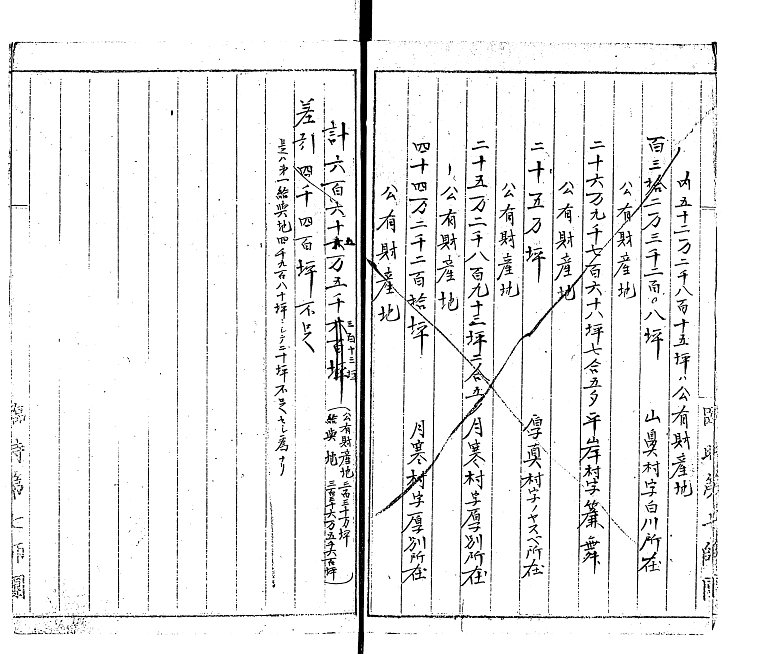 内五十二万二千八百十五坪ハ公有財産地
百三拾二万三千二百〇八坪 山鼻村字白川所在
公有財産地
二十六万九千七百六十八坪七合五夕 平岸村字簾舞
公有財産地
二十五万坪 厚真村字ノヤスベ所在
公有財産地
二十五万二千八百九十三坪二合五 月寒村字厚別所在
公有財産地
四十四万二千二百拾坪 月寒村字厚別所在
公有財産地
計六百六十五万五千三百十三坪
(公有財産地 三百三十万坪
給与地 三百三十六万五千六百坪)
差引四千四百坪不足
是ハ第一給与地四千九百八十坪
臨時第七師團
臨時第七師團